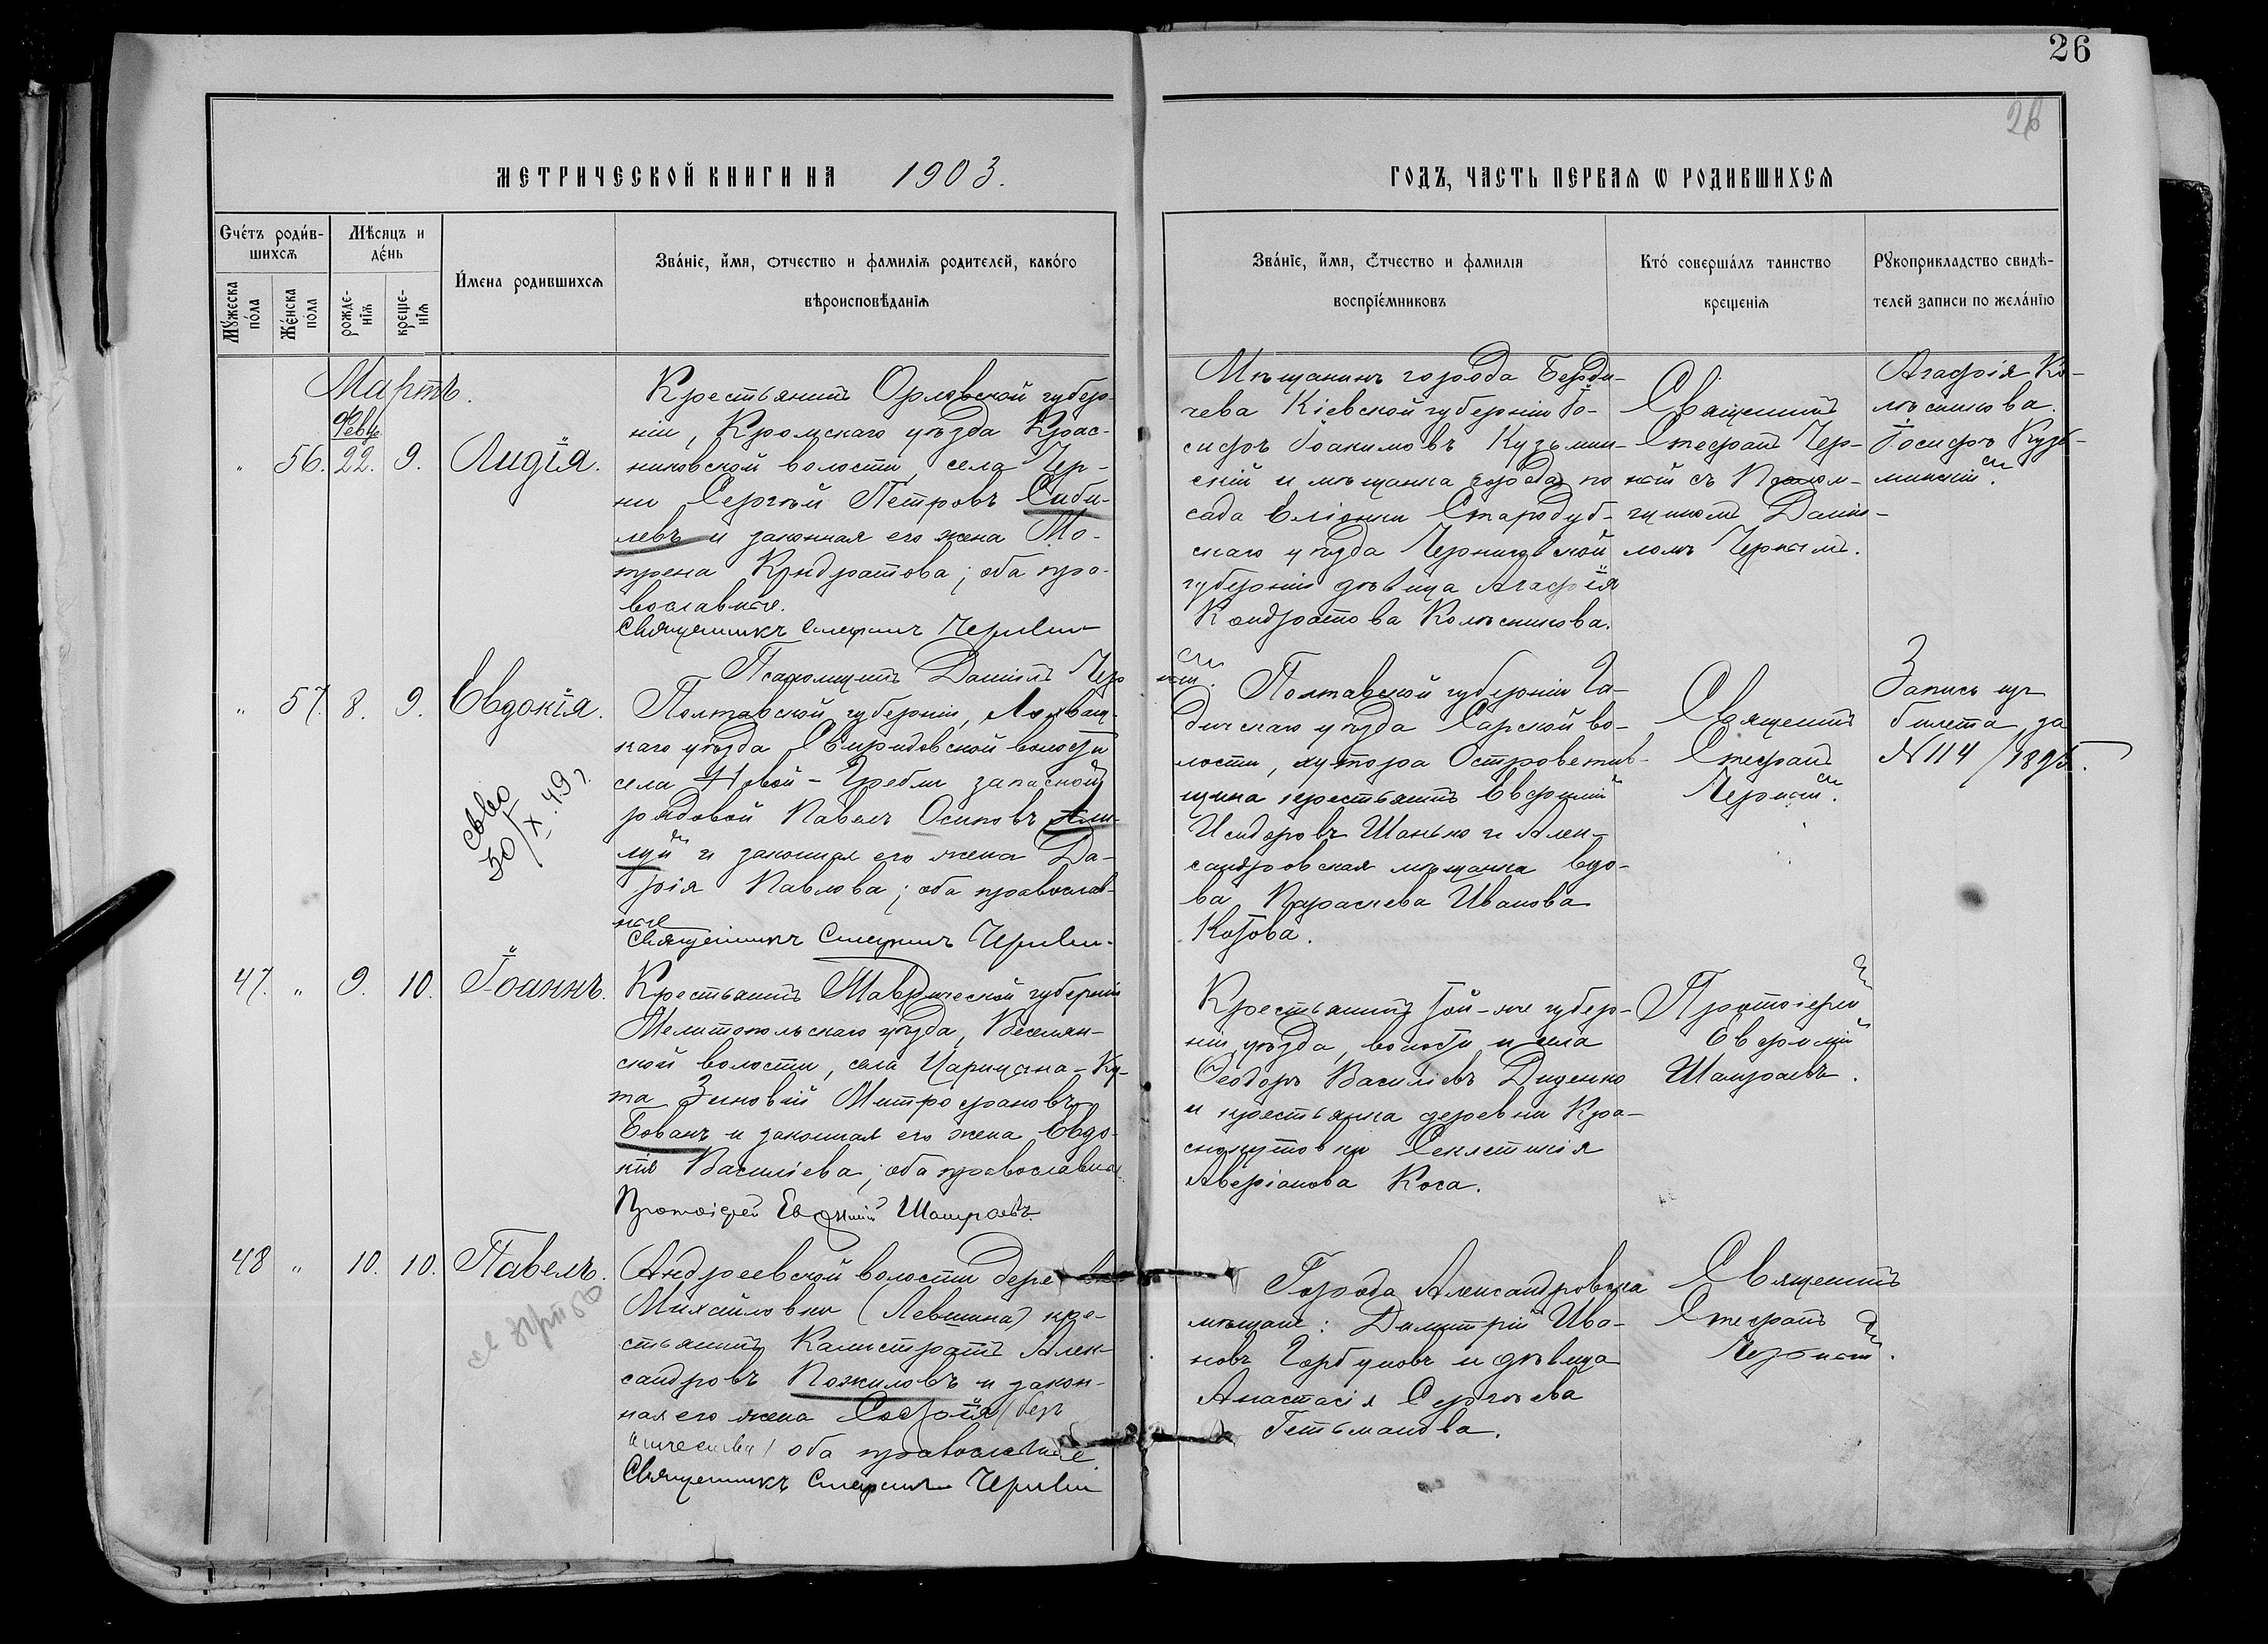 26
26
МЕТРИЧЕСКОЙ КНИГИ НА 1903.
ГОДЪ, ЧАСТЬ ПЕРВАЯ Ѡ РОДИВШИХСЯ
Счéтъ роди́вшихсѧ
Мѣсяцъ и дéнь
Мꙋ́жеска пóла
Жéнска пóла
рождéнїѧ
крещéнїѧ
И́мена родившихсѧ
Звáнїе, и́мя, отчество и фамилїѧ родителей, какóго
вѣроисповѣ́данїѧ
Звáнїе, и́мя, ѻ́тчество и фамилїя
воспрїéмниковъ
Ктó совершáлъ таинство
крещенїѧ
Рꙋкоприкладство свидѣ-
телей записи по желáнїю
Мартъ.
Февр.
" 56. 22. 9. Лидія.
Крестьянинъ Орловской губер-
ніи, Кромскаго уѣзда Крас-
никовской волости, села Чер-
ни Сергѣй Петровъ Сиби-
левъ и законная его жена Мо-
трена Кондратова; оба пра-
вославные.
Священникъ Стефанъ Черный
Псаломщикъ Даніилъ Чер
ный.
Мѣщанинъ города Берди-
чева Кіевской губерніи Іо-
сифъ Іоакимовъ Кузьмин-
скій и мѣщанка города по
сада Еліонки Стародуб-
скаго уѣзда Черниговской
губерніи дѣвица Агафія
Кондратова Колѣсникова.
Священникъ
Стефанъ Чер-
ный съ Псалом-
щикомъ Даніи-
ломъ Чернымъ.
Агафія Ко-
лѣсникова.
Іосифъ Кузь-
минскій.
" 57. 8. 9. Евдокія.
св-во
30/X.49 г.
Полтавской губерніи, Лохвиц-
каго уѣзда Свиридовской волости
села Новой-Гребли запасной
рядовой Павелъ Осиповъ
луй и законная его жена Да-
рія Павлова; оба православ-
ные
Священникъ Стефанъ Черный.
Полтавской губерніи Га-
дичскаго уѣзда Сарской во-
лости, хутора
щина крестьянинъ Евфимій
Исидоровъ Шанько и Алек-
сандровская мѣщанка вдо-
ва Параскева Иванова
Котова.
Священникъ
Стефанъ
Черный.
Запись изъ
билета за
N 114/1895.
47. " 9. 10. Іоаннъ.
Крестьянинъ Таврической губерніи
Мелитопольскаго уѣзда, Веселян-
ской волости, села Царицына-Ку-
та Зиновій Митрофановъ
Бованъ и законная его жена Евдо-
кія Васильева; оба православные.
Протоіерей Евфимій Шамраевъ.
Крестьянинъ той-же губер-
ніи, уѣзда, волости и села
Ѳеодоръ Василіевъ Диденко
и крестьянка деревни Кра-
снокутовки Секлетикія
Аверіанова Коса.
Протоіерей
Евфимій
Шамраевъ.
48 " 10. 10. Павелъ.
Андреевской волости деревни
Михайловки (Левшина) кре-
стьянинъ Калистратъ Алек-
сандровъ Пожиловъ и закон-
ная его жена Софія (безъ
отчества) оба православные.
Священникъ Стефанъ Черный
Города Александровска
мѣщане: Димитрій Ива-
новъ Горбуновъ и дѣвица
Анастасія Сергѣева
Гетьманова.
Священникъ
Стефанъ
Черный.